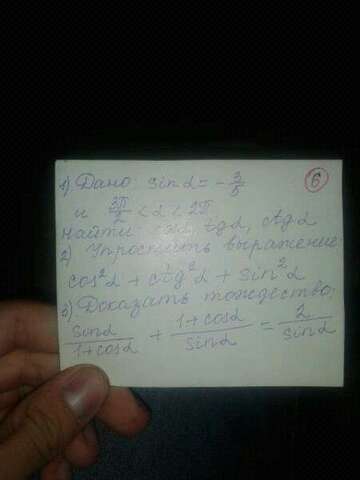 1) Дано: sin α = -3/5
6
и 3π/2 < α < 2π
найти cos α, tg α, ctg α
2) Упростить выражение:
cos²α + ctg²α + sin²α
3) Доказать тождество:
sin α/(1+cos α) + (1+cos α)/sin α = 2/sin α